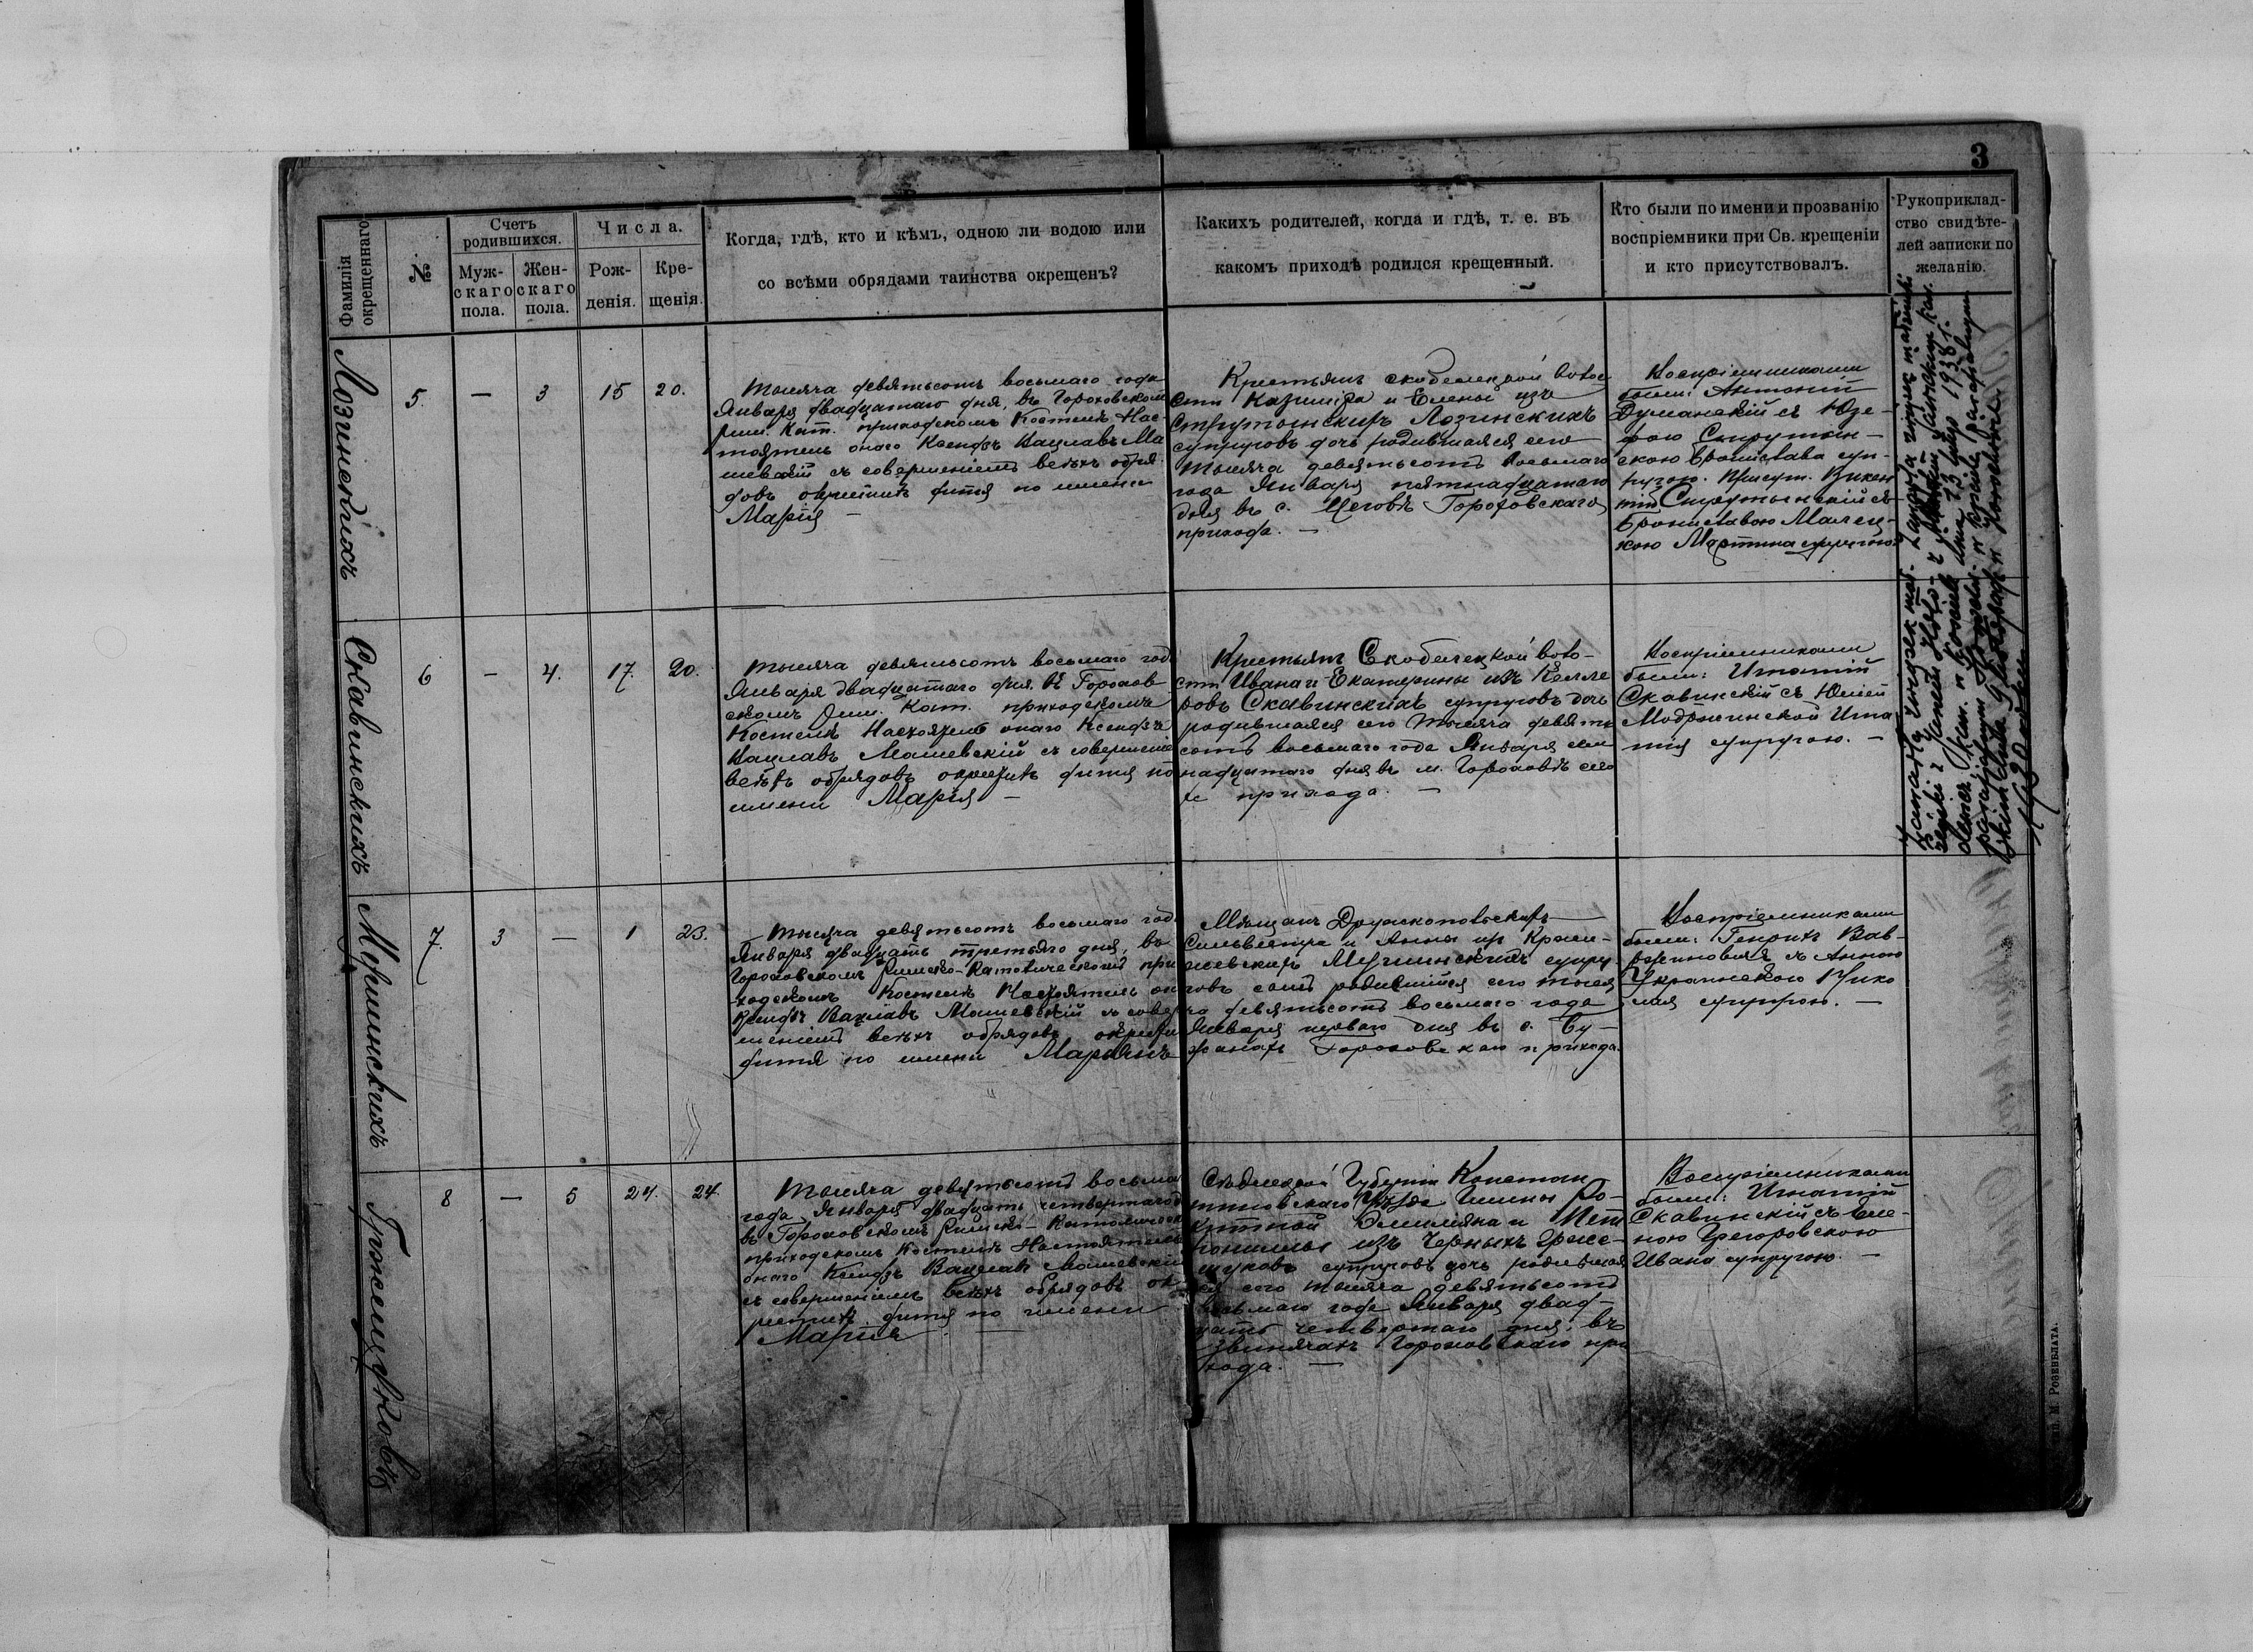 3
Фамилія
окрещеннаго
№
Счетъ
родившихся.
Муж-
скаго
пола.
Жен-
скаго
пола.
Числа.
Рож-
денія.
Кре-
щенія.
Когда, гдѣ, кто и кѣмъ, одною ли водою или
со всѣми обрядами таинства окрещенъ?
Какихъ родителей, когда и гдѣ, т. е. въ
какомъ приходѣ родился крещенный.
Кто были по имени и прозванію
воспріемники при Св. крещеніи
и кто присутствовалъ.
Рукоприклад-
ство свидѣте-
лей записки по
желанію.
Лозинскихъ
5.
—
3
15
20.
Тысяча девятьсотъ восьмаго года
Января двадцатаго дня, въ Гороховскомъ
Рим. Кат. приходскомъ Костелѣ Нас-
тоятель онаго Ксендзъ Вацлавъ Ма
шевскій съ совершеніемъ всѣхъ обря
довъ окрестилъ дитя по имени
Марія —
Крестьянъ Скобелецкой воло
сти Казиміра и Елены изъ
Струтынскихъ Лозинскихъ
супруговъ дочь родившаяся сего
тысяча девятьсотъ восьмаго
года Января пятнадцатаго
дня въ с. Цеговѣ Гороховскаго
прихода. —
Воспріемниками
были: Антоній
Думанскій съ Юзе-
фою Струтын-
скою Бронислава суп-
ругою. Присут. Викен
тій Струтынскій съ
Брониславою Малец-
кою Мартина супругою.
Скавинскихъ
6
—
4.
17.
20.
Тысяча девятьсотъ восьмаго года
Января двадцатаго дня въ Горохов
скомъ Рим. Кат. приходскомъ
Костелѣ Настоятель онаго Ксендзъ
Вацлавъ Машевскій съ совершеніе
всѣхъ обрядовъ окрестилъ дитя по
имени Марія —
Крестьянъ Скобелецкой воло-
сти Ивана и Екатерины изъ Келле
ровъ Скавинскихъ супруговъ дочь
родившаяся сего тысяча девять
сотъ восьмаго года Января сем
надцатаго дня въ м. Гороховѣ сего
же прихода. —
Воспріемниками
были: Игнатій
Скавинскій съ Юліей
Модрынинской Игна
тія супругою. —
Мершинскихъ
7.
3
—
1
23.
Тысяча девятьсотъ восьмаго года
Января двадцать третьяго дня, въ
Гороховскомъ Римско-Католическомъ при
ходскомъ Костелѣ Настоятель он
Ксендзъ Вацлавъ Машевскій съ совер
шеніемъ всѣхъ обрядовъ окрести
дитя по имени Марьянъ
Мѣщанъ Дружкопольскихъ
Сильвестра и Анны из
супру-
говъ сынъ родившійся сего тыся
ча девятьсотъ восьмаго года
Января перваго дня въ с. Бу-
жанахъ Гороховскаго прихода.
Воспріемниками
были: Генрихъ Вав-
съ Анною
Украинскою Нико
лая супругою. —
Гржещуковъ
8
—
5
24.
24.
Тысяча девятьсотъ восьма
года Января двадцать четвертаго д
въ Гороховскомъ Римско-Католическ
приходскомъ Костелѣ Настоятель
онаго Ксендзъ Вацлавъ Машевскій
съ совершеніемъ всѣхъ обрядовъ ок
рестилъ дитя по имени
Марія —
Сѣдлецкой Губерніи Констан
тиновскаго Уѣзда Гмины Ро-
китной Эмиліяна и Пет
ронишлы изъ Черныхъ Грже-
щуковъ супруговъ дочь родившая
ся сего тысяча девятьсотъ
восьмаго года Января двад-
цать четвертаго дня, въ
Звинячахъ Гороховскаго при
хода. —
Воспріемниками
были: Игнатій
Скавинскій съ Еле-
ною Грегоровскою
Ивана супругою. —
М. Розенблата.